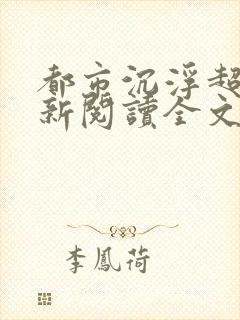 都市沉浮超
新閱讀全文
李鳳荷